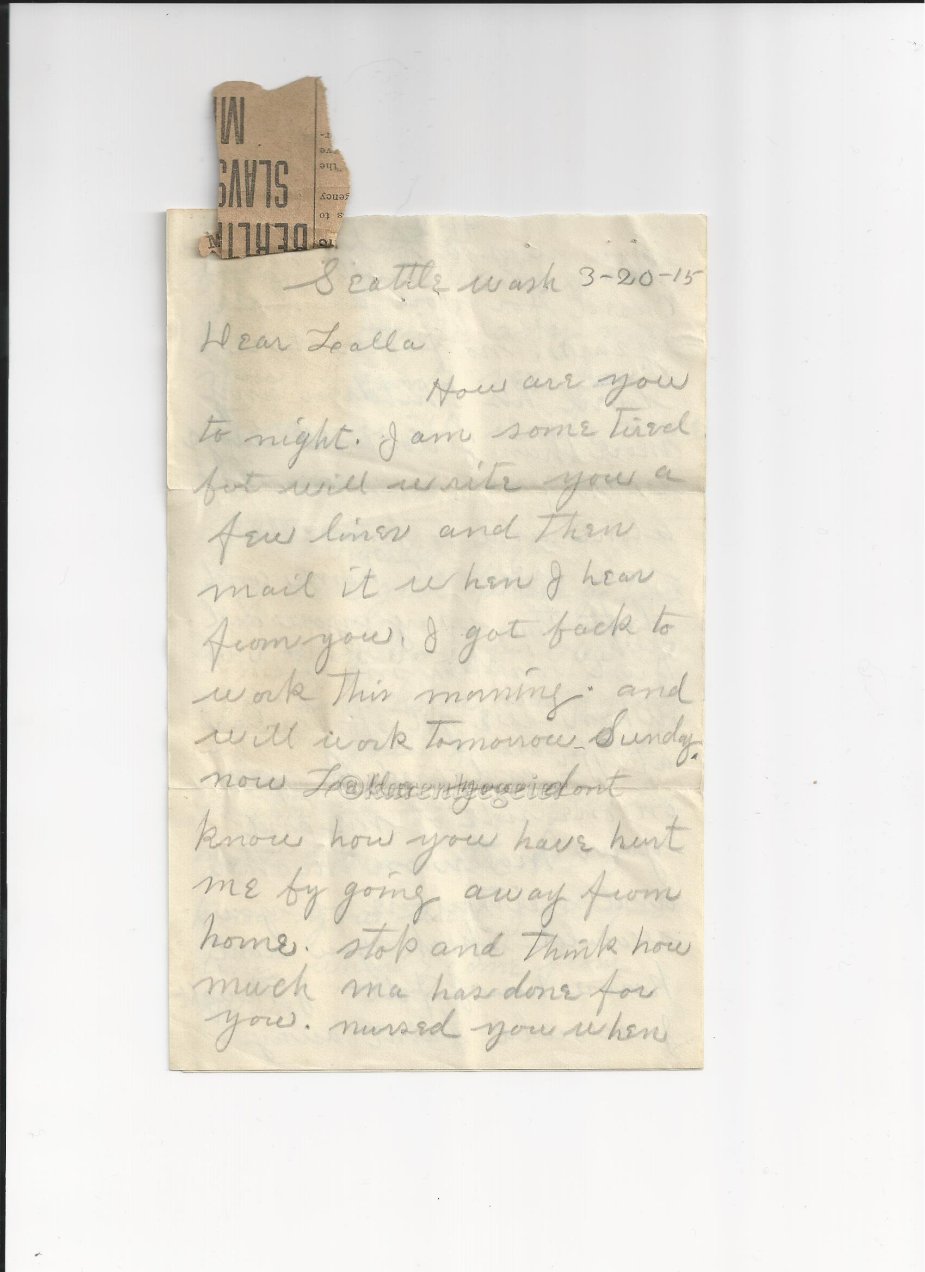 M
SLAVS
BERLIN
ve
The
gency
s to
Seattle wash 3-20-15
Dear Lalla
How are you
to night. I am some tired
but will write you a
few lines and then
mail it when I hear
from you. I got back to
work this morning. and
will work tomorrow Sunday.
now Lalla you dont
know how you have hurt
me by going away from
home. stop and think how
much ma has done for
you. nursed you when